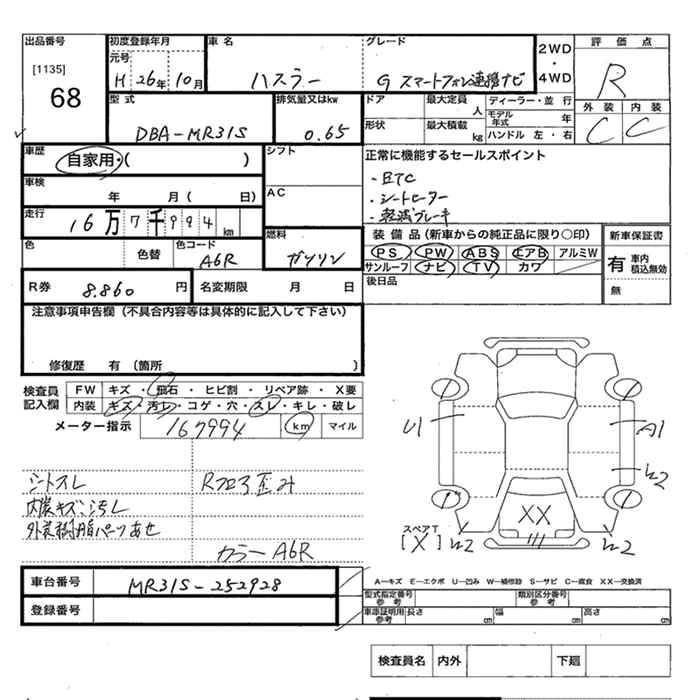 出品番号 初度登録年月 車名 グレード 2WD・4WD 評価点
[1135] 68
元号 H 26年 10月 ハスラー G スマートフォン連携ナビ R
外装 内装
C C
型式 DBA-MR31S 排気量又はkw 0.65
ドア 最大定員 人 ディーラー・並行
形状 最大積載 kg モデル年式 年
ハンドル 左・右
車歴 自家用・( )
シフト
正常に機能するセールスポイント
・ETC
・シートヒーター
・軽減ブレーキ
車検 年 月( 日)
AC
走行 16万7千994km
色 色替 色コード A6R
燃料 ガソリン
装備品(新車からの純正品に限り○印)
PS PW ABS エアB アルミW
サンルーフ ナビ TV カワ
新車保証書
有 車内積込無効
無
R券 8.860円 名変期限 月 日
後日品
注意事項申告欄(不具合内容等は具体的に記入して下さい)
修復歴 有(箇所 )
検査員記入欄
FW キズ・飛石・ヒビ割・リペア跡・X要
内装 キズ・汚レ・コゲ・穴・スレ・キレ・破レ
メーター指示 167994 km マイル
シートスレ Rフロア歪み
内装キズ汚レ
外装樹脂パーツあせ
カラーA6R
U1 A1
W2
XX
スペアT
[X] W2 W2
車台番号 MR31S-252928
登録番号
A-キズ E-エクボ U-凹み W-補修跡 S-サビ C-腐食 XX-交換済
型式指定番号参考 類別区分番号参考
車庫証明用参考 長さ cm 幅 cm 高さ cm
検査員名 内外 下廻